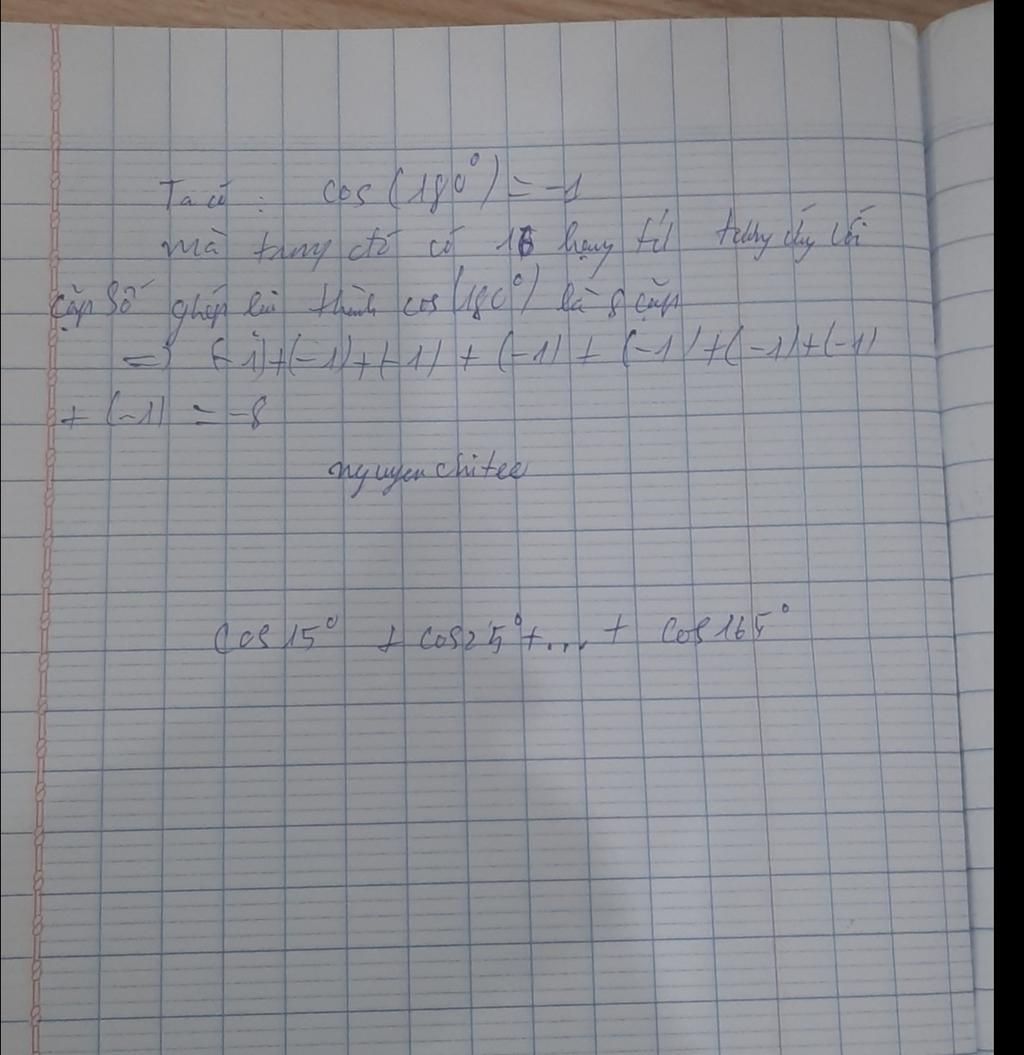 Ta có : cos (180°) = -1
mà trong đó có 16 hạng tử tương ứng với
cặp số ghép lại thành cos (180°) là 8 cặp
=> (-1)+(-1)+(-1) + (-1) + (-1)+(-1)+(-1)
+ (-1) = -8
nguyenchitee
cos 15° + cos25°+... + cos 165°